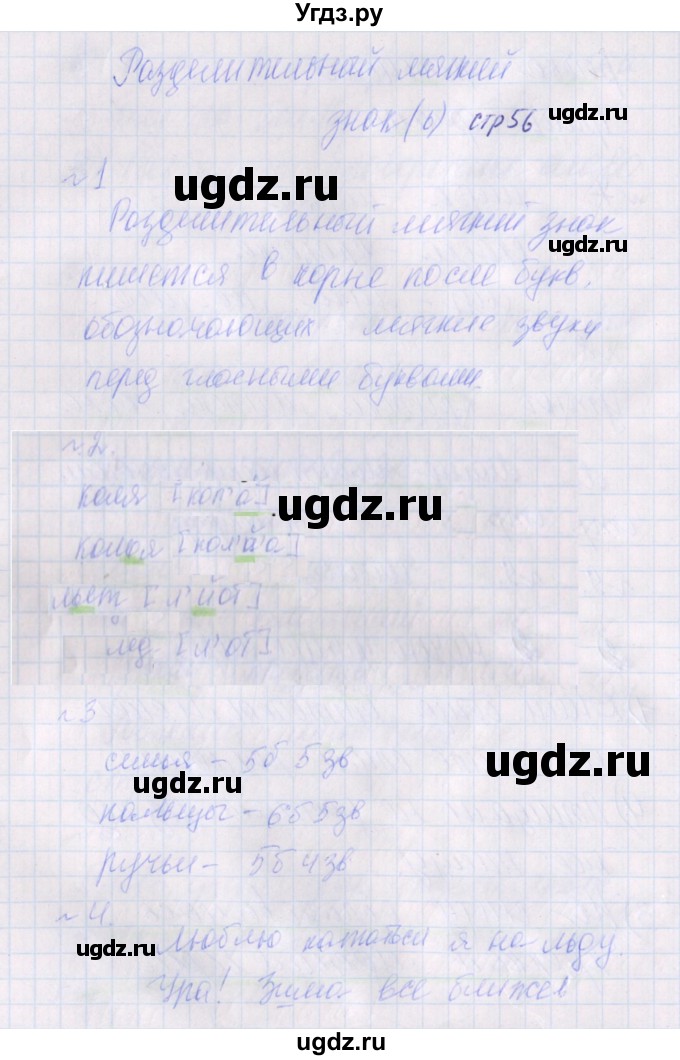 Угдз.ру
Разделительный мягкий
знак (ь) стр 56
ugdz.ru
ugdz.ru
№1
Разделительный мягкий знак
ugdz.ru
пишется в корне после букв,
обозначающих мягкие звуки
перед гласными буквами.
№2.
коля [кол'а]
ugdz.ru
колья [кол'й'а]
льёт [л'йот]
лёд [л'от]
№3
семья - 5б 5зв
ugdz.ru
ugdz.ru
пальцы - 6б 5зв
ручьи - 5б 4зв
№4.
ugdz.ru
Люблю кататься я на льду.
Ура! Зима все ближе
ugdz.ru